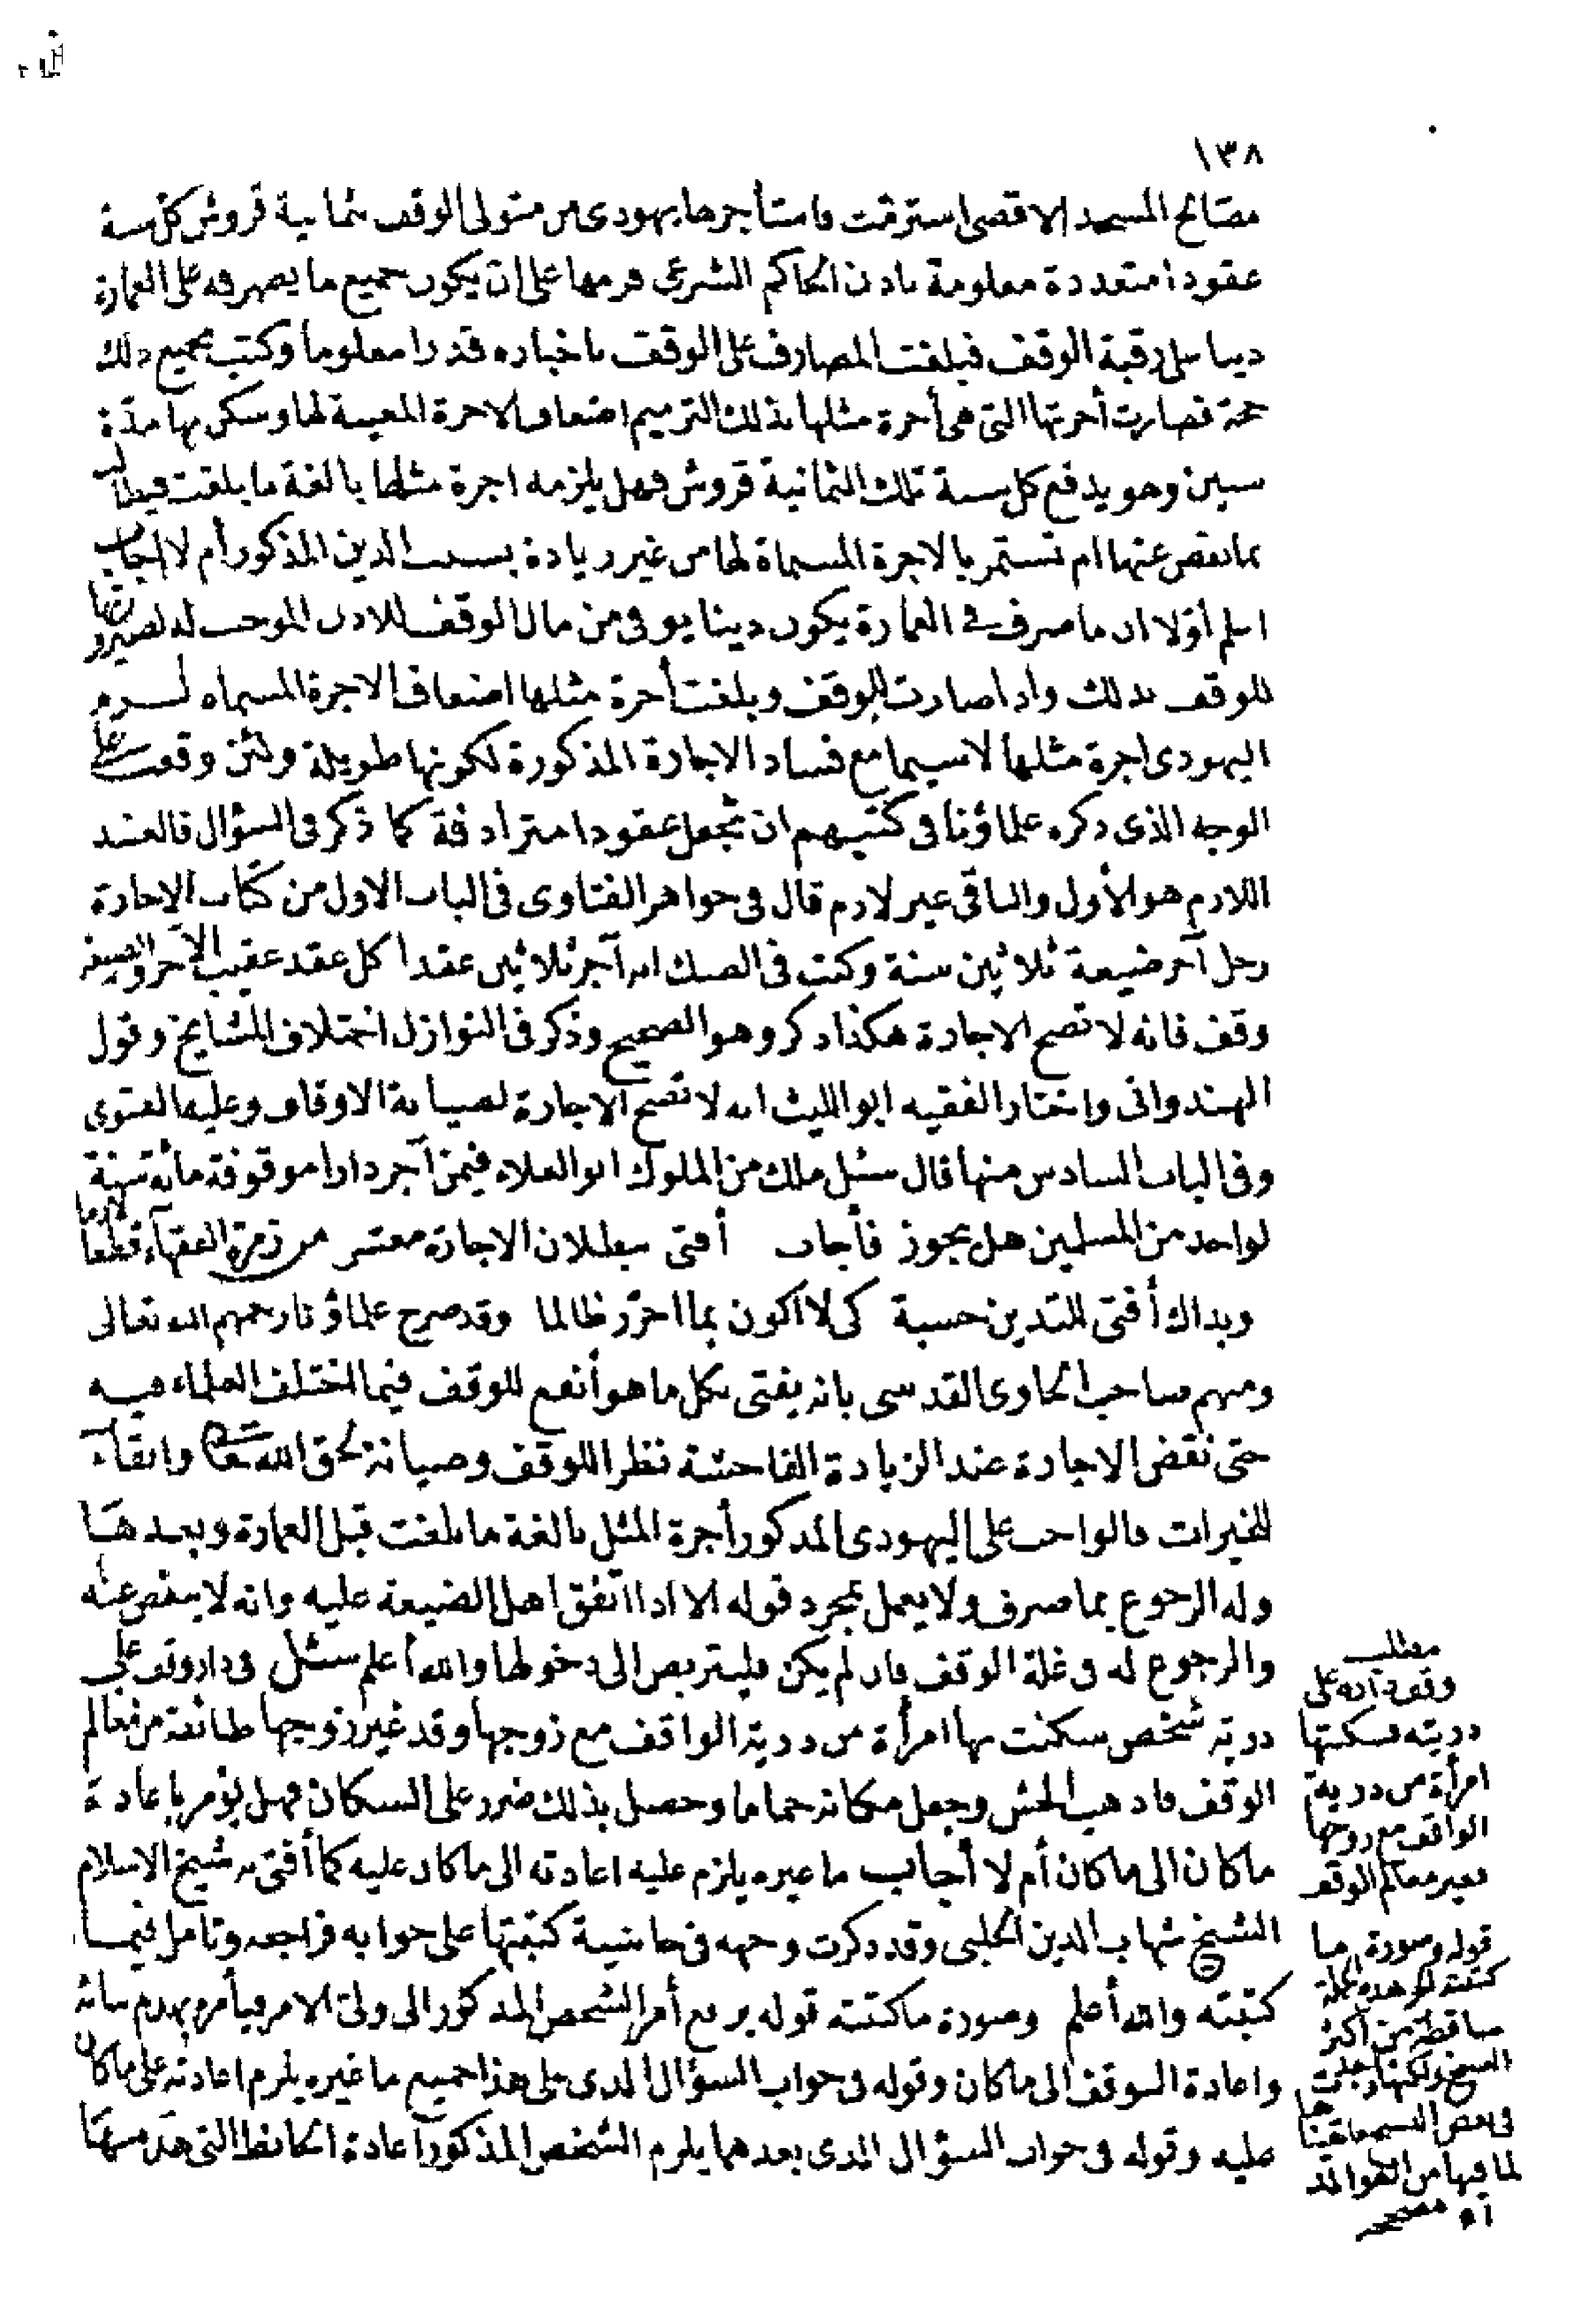 ١٣٨
مصالح المسجد الاقصى استرمّت فاستأجرها يهودى من متولى الوقف بثمانية قروش كل سنة
عقودا متعددة معلومة باذن الحاكم الشرعى فرمها على ان يكون جميع ما يصرفه على العمارة
دينا على رقبة الوقف فبلغت المصارف على الوقف باخباره قدرا معلوما وكتب بجميع ذلك
حجة فصارت أجرتها التى هى أجرة مثلها بذلك الترميم اضعاف الاجرة المعينة لها وسكن بها مدّة
سنين وهو يدفع كل سنة تلك الثمانية قروش فهل يلزمه اجرة مثلها بالغة ما بلغت فيطالب
بما نقص عنها ام تستمر بالاجرة المسماة لها من غير زيادة بسبب الدين المذكور أم لا اجاب
اعلم أولا ان ما صرف فى العمارة يكون دينا يوفى من مال الوقف للاذن الموجب له لصيرورتها
للوقف بذلك واذا صارت للوقف وبلغت أجرة مثلها اضعاف الاجرة المسماه لزم
اليهودى اجرة مثلها لاسيما مع فساد الاجارة المذكورة لكونها طويلة ولئن وقعت على
الوجه الذى ذكره علماؤنا فى كتبهم ان تجعل عقودا مترادفة كما ذكر فى السؤال فالعقد
اللازم هو الأول والباقى غير لازم قال فى جواهر الفتاوى فى الباب الاول من كتاب الاجارة
رجل آجر ضيعة ثلاثين سنة وكتب فى الصك انه آجر ثلاثين عقدا كل عقد عقيب الآخر والضيعة
وقف فانه لا تصح الاجارة هكذا ذكر وهو الصحيح وذكر فى النوازل اختلاف المشايخ وقول
الهندوانى واختار الفقيه ابو الليث انه لا تصح الاجارة لصيانة الاوقاف وعليه الفتوى
وفى الباب السادس منها قال سئل ملك من الملوك ابو العلاء فيمن آجر دارا موقوفة مائة سنة
لواحد من المسلمين هل يجوز فأجاب أفتى ببطلان الاجارة معشر من زمرة الفقهاء قطعا لازما
وبذاك أفتى للتدين حسبة كى لا اكون بما احرّر ظالما وقد صرح علماؤنا رحمهم الله تعالى
ومنهم صاحب الحاوى القدسى بانه يفتى بكل ما هو أنفع للوقف فيما اختلف العلماء فيه
حتى نقض الاجارة عند الزيادة الفاحشة نظرا للوقف وصيانة لحق الله تعالى وابقاء
للخيرات فالواجب على اليهودى المذكور أجرة المثل بالغة ما بلغت قبل العمارة وبعدها
وله الرجوع بما صرف ولا يعمل بمجرد قوله الا اذا اتفق اهل الضيعة عليه وانه لا ينقص عنه
والرجوع له فى غلة الوقف فان لم يكن فليتربص الى دخولها والله أعلم سئل فى دار وقف على
ذرية شخص سكنت بها امرأة من ذرية الواقف مع زوجها وقد غير زوجها طائفة من معالم
الوقف فاذهب الحش وجعل مكانه حماما وحصل بذلك ضرر على السكان فهل يؤمر باعادة
ما كان الى ما كان أم لا أجاب ما غيره يلزم عليه اعادته الى ما كان عليه كما أفتى به شيخ الاسلام
الشيخ شهاب الدين الحلبى وقد ذكرت وجهه فى حاشية كتبتها على جوابه فراجعه وتأمل فيما
كتبته والله أعلم وصورة ما كتبته قوله يرفع أمر الشخص المذكور الى ولىّ الامر فيأمره بهدم بنائه
واعادة الوقف الى ما كان وقوله فى جواب السؤال الذى على هذا جميع ما غيره يلزم اعادته على ما كان
عليه وقوله فى جواب السؤال الذى بعدهما يلزم الشخص المذكور اعادة الحائط التى هدمها
مطلب
وقف داره على
ذريته فسكنتها
امرأة من ذرية
الواقف مع زوجها
فغير معالم الوقف
قوله وصورة ما
كتبته الخ هذه الجملة
ساقطة من أكثر
النسخ ولكنها وجدت
فى بعض النسخ فأثبتناها
لما فيها من الفوائد
اه مصححه